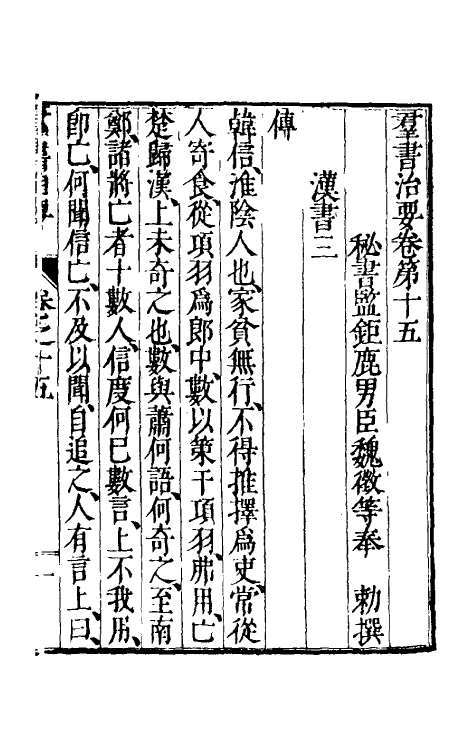 羣書治要卷第十五
秘書監鉅鹿男臣魏徵等奉 勅撰
漢書三
傳
韓信、淮陰人也、家貧無行、不得推擇爲吏、常從
人寄食、從項羽爲郎中、數以策干項羽、弗用、亡
楚歸漢、上未奇之也、數與蕭何語、何奇之、至南
鄭、諸將亡者十數人、信度何已數言、上不我用、
卽亡、何聞信亡、不及以聞、自追之、人有言上曰、
卷之十五
一